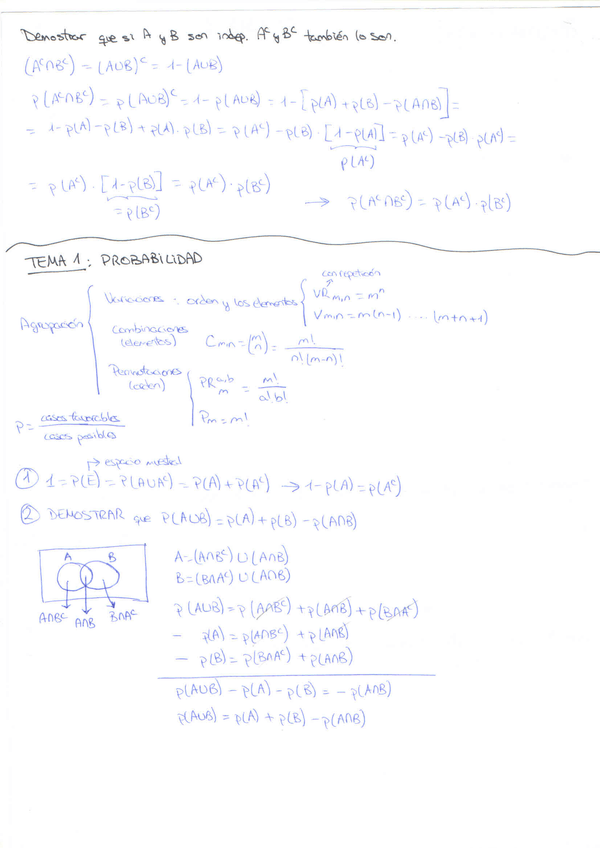 Demostrar que si A y B son indep. Aᶜ y Bᶜ también lo son.
(Aᶜ∩Bᶜ) = (A∪B)ᶜ = 1-(A∪B)
p(Aᶜ∩Bᶜ) = p(A∪B)ᶜ = 1-p(A∪B) = 1-[p(A)+p(B)-p(A∩B)] =
= 1-p(A)-p(B)+p(A)·p(B) = p(Aᶜ)-p(B)·[1-p(A)] = p(Aᶜ)-p(B)·p(Aᶜ) =
p(Aᶜ)
= p(Aᶜ)·[1-p(B)] = p(Aᶜ)·p(Bᶜ) → p(Aᶜ∩Bᶜ) = p(Aᶜ)·p(Bᶜ)
=p(Bᶜ)
TEMA 1: PROBABILIDAD
con repetición
Agrupación
Variaciones: orden y los elementos
VR m,n = mⁿ
Vm,n = m(n-1) ..... (m+n+1)
Combinaciones (elementos)
Cm,n = (m n) = m! / n!(m-n)!
Permutaciones (orden)
PR a,b m = m! / a!b!
Pm = m!
P = casos favorables / casos posibles
→ espacio muestral
① 1 = P(E) = P(A∪Aᶜ) = P(A)+P(Aᶜ) → 1-p(A) = p(Aᶜ)
② DEMOSTRAR que P(A∪B) = p(A)+p(B)-p(A∩B)
A B
A∩Bᶜ A∩B B∩Aᶜ
A = (A∩Bᶜ) ∪ (A∩B)
B = (B∩Aᶜ) ∪ (A∩B)
p(A∪B) = p(A∩Bᶜ) + p(A∩B) + p(B∩Aᶜ)
- p(A) = p(A∩Bᶜ) + p(A∩B)
- p(B) = p(B∩Aᶜ) + p(A∩B)
p(A∪B) - p(A) - p(B) = - p(A∩B)
p(A∪B) = p(A) + p(B) - p(A∩B)